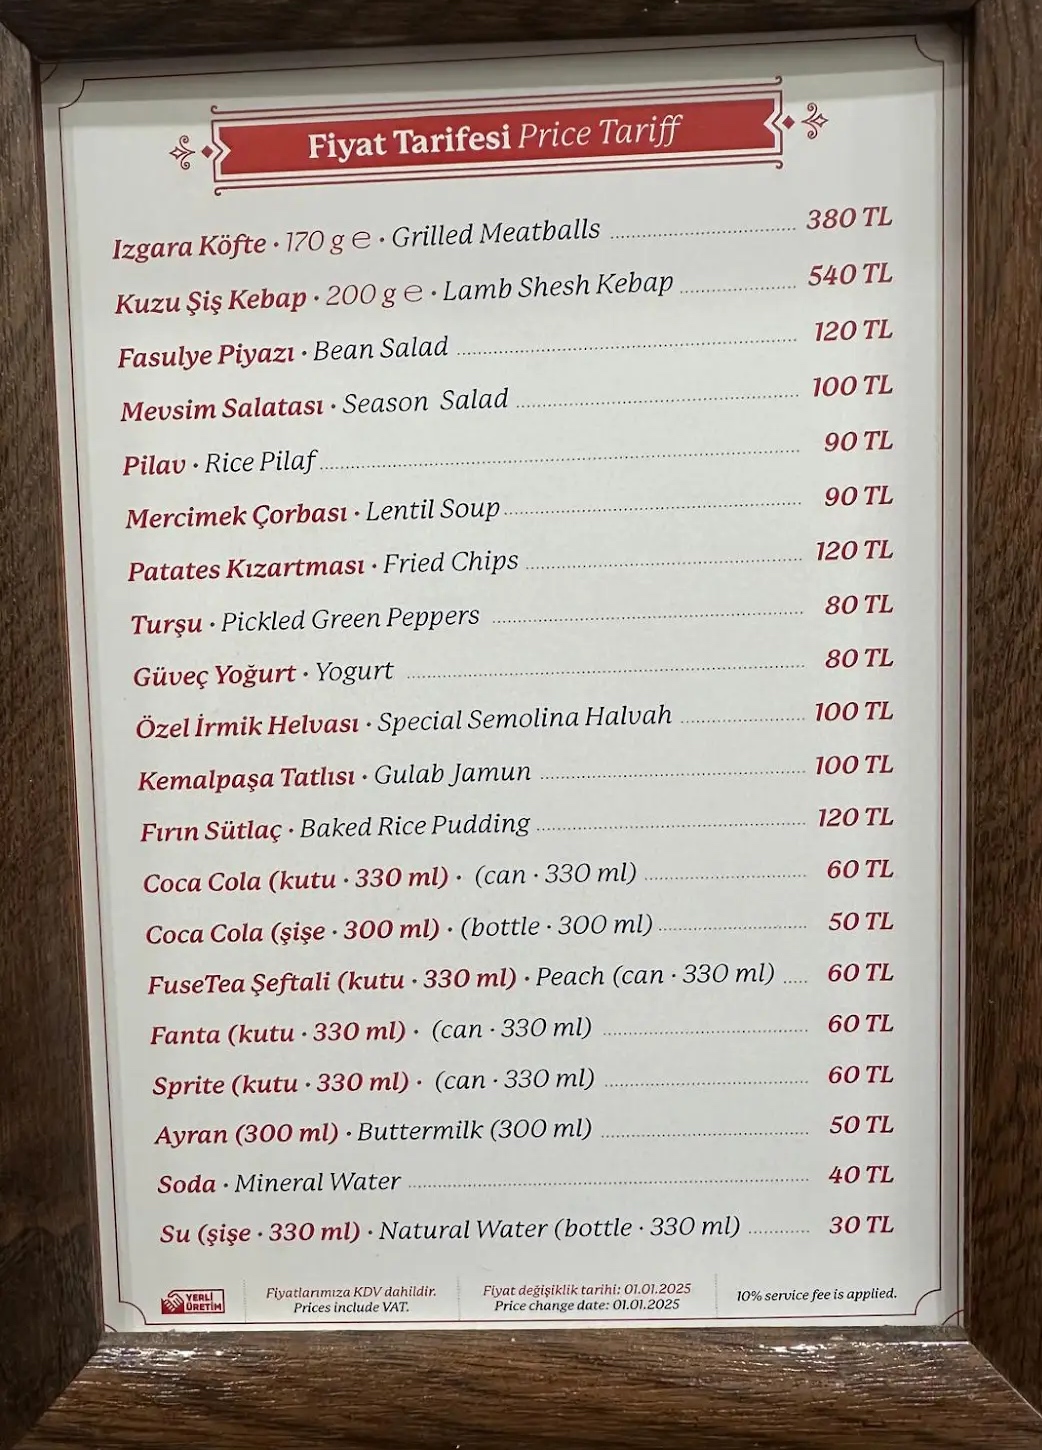 Fiyat Tarifesi Price Tariff
Izgara Köfte · 170 g ℮ · Grilled Meatballs 380 TL
Kuzu Şiş Kebap · 200 g ℮ · Lamb Shesh Kebap 540 TL
Fasulye Piyazı · Bean Salad 120 TL
Mevsim Salatası · Season Salad 100 TL
Pilav · Rice Pilaf 90 TL
Mercimek Çorbası · Lentil Soup 90 TL
Patates Kızartması · Fried Chips 120 TL
Turşu · Pickled Green Peppers 80 TL
Güveç Yoğurt · Yogurt 80 TL
Özel İrmik Helvası · Special Semolina Halvah 100 TL
Kemalpaşa Tatlısı · Gulab Jamun 100 TL
Fırın Sütlaç · Baked Rice Pudding 120 TL
Coca Cola (kutu · 330 ml) · (can · 330 ml) 60 TL
Coca Cola (şişe · 300 ml) · (bottle · 300 ml) 50 TL
FuseTea Şeftali (kutu · 330 ml) · Peach (can · 330 ml) 60 TL
Fanta (kutu · 330 ml) · (can · 330 ml) 60 TL
Sprite (kutu · 330 ml) · (can · 330 ml) 60 TL
Ayran (300 ml) · Buttermilk (300 ml) 50 TL
Soda · Mineral Water 40 TL
Su (şişe · 330 ml) · Natural Water (bottle · 330 ml) 30 TL
YERLİ
ÜRETİM
Fiyatlarımıza KDV dahildir.
Prices include VAT.
Fiyat değişiklik tarihi: 01.01.2025
Price change date: 01.01.2025
10% service fee is applied.